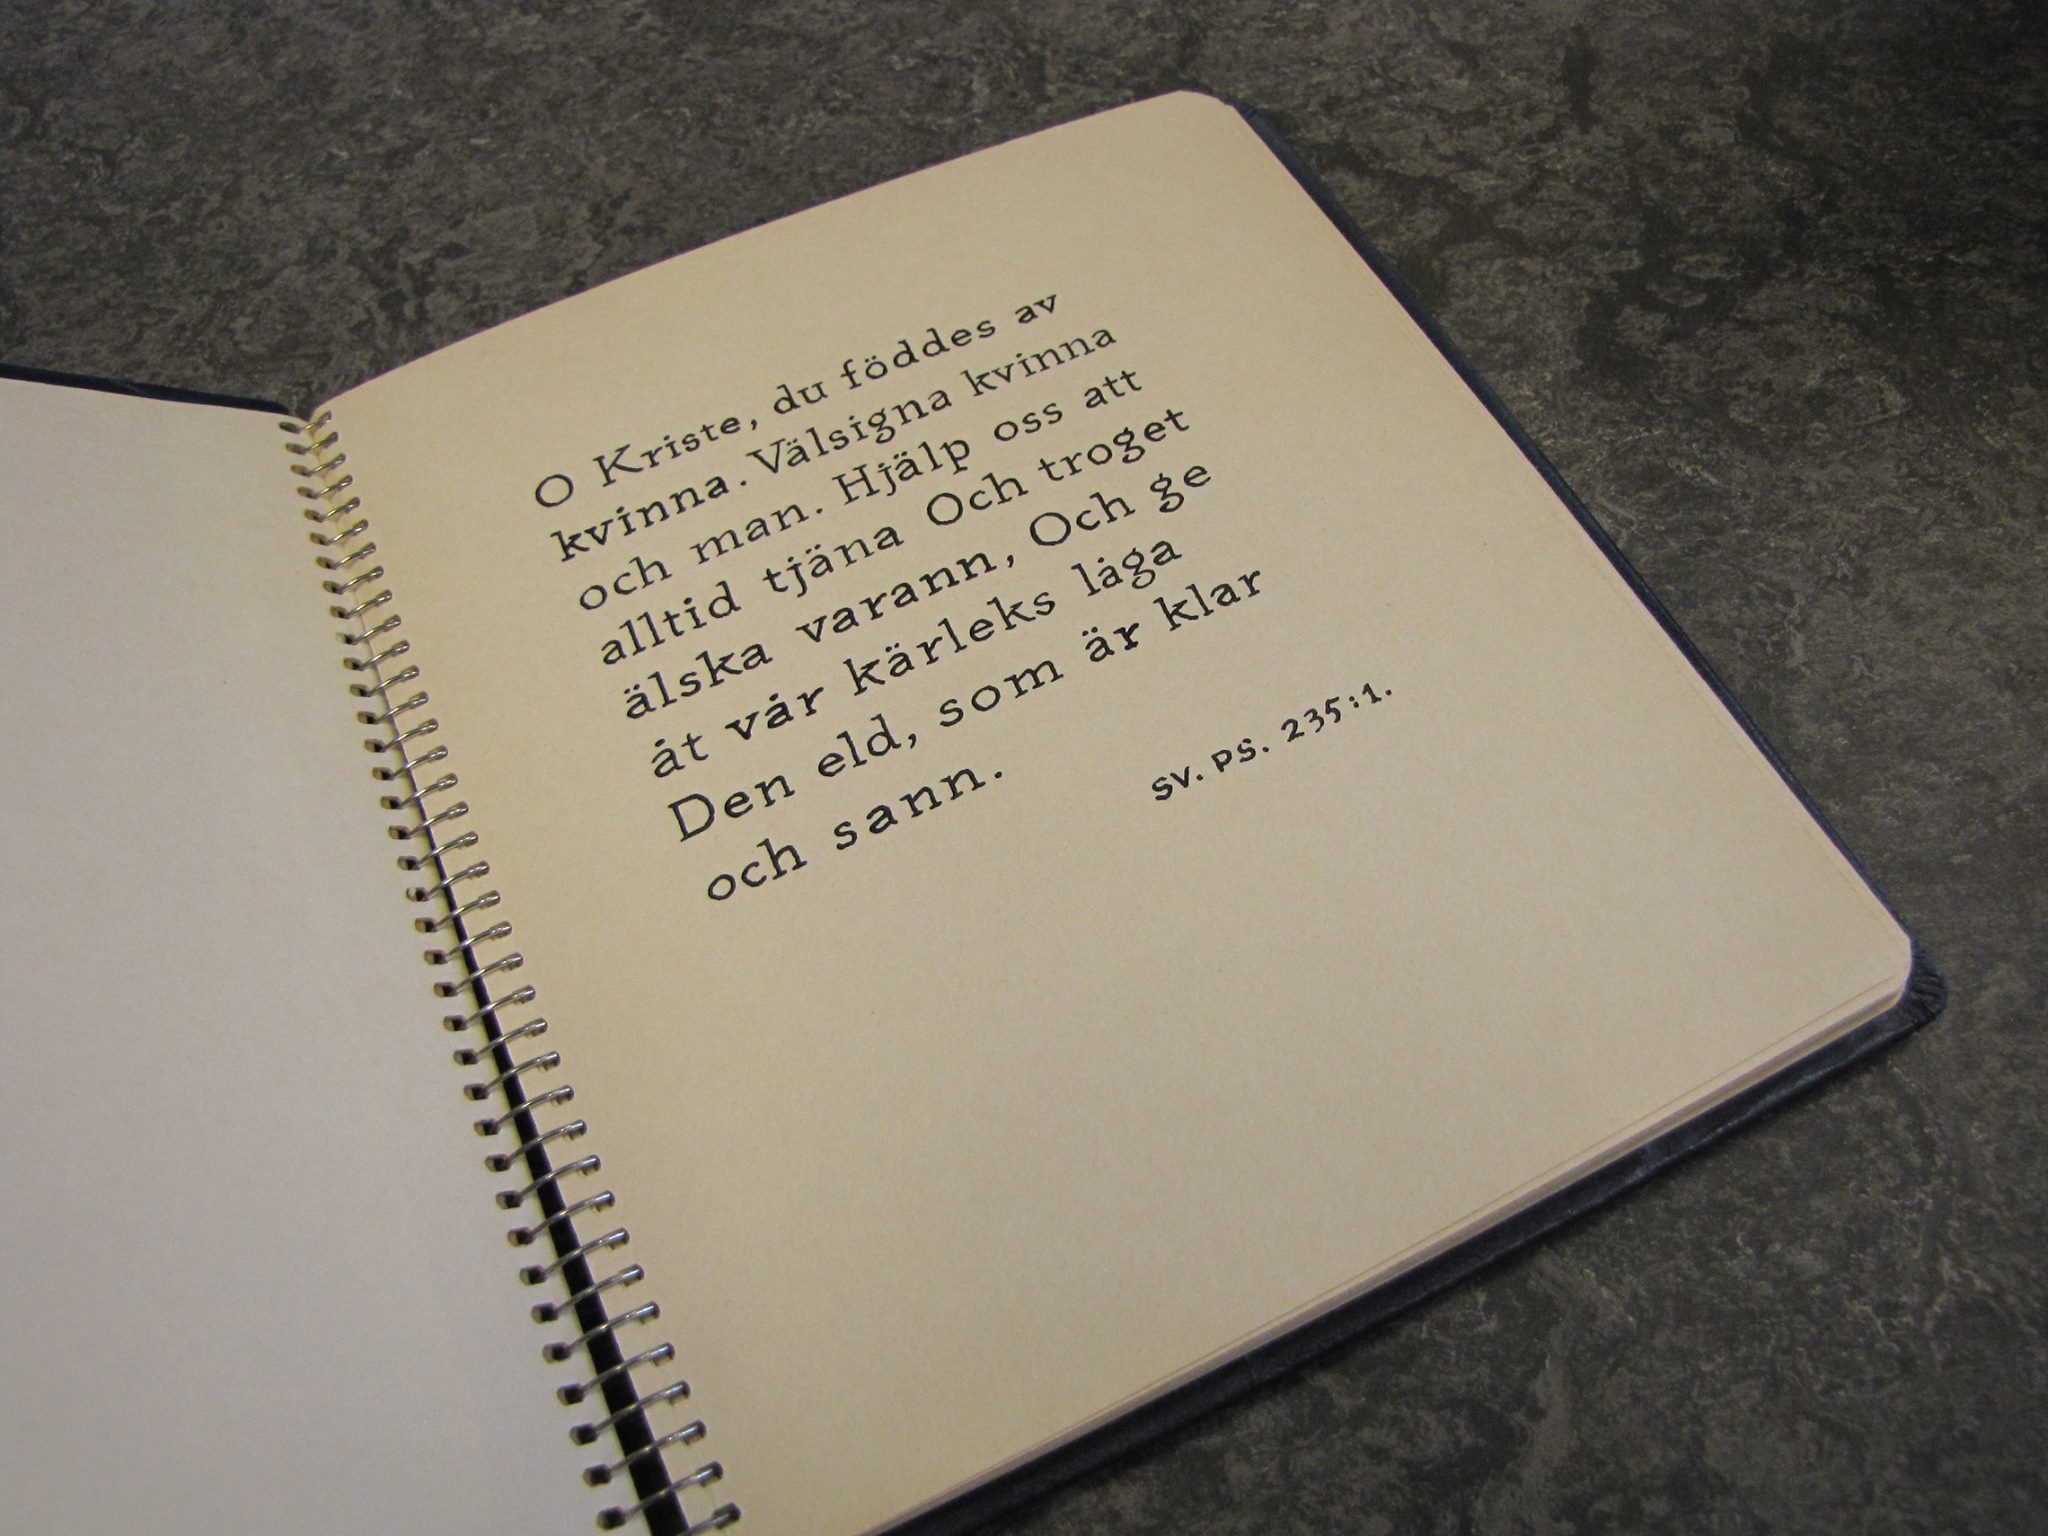 O Kriste, du föddes av
kvinna. Välsigna kvinna
och man. Hjälp oss att
alltid tjäna Och troget
älska varann, Och ge
åt vår kärleks låga
Den eld, som är klar
och sann.
SV. PS. 235:1.